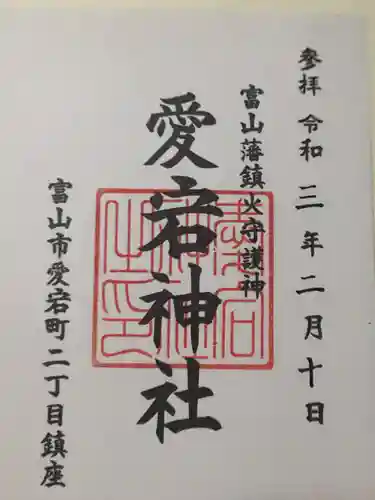 参拝 令和三年二月十日
富山藩鎮火守護神
愛宕神社
富山市愛宕町二丁目鎮座
愛宕神社之印